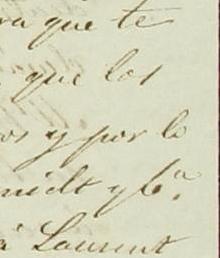 ra que te
que los
os y por lo
midt y Cª.
a Laurent